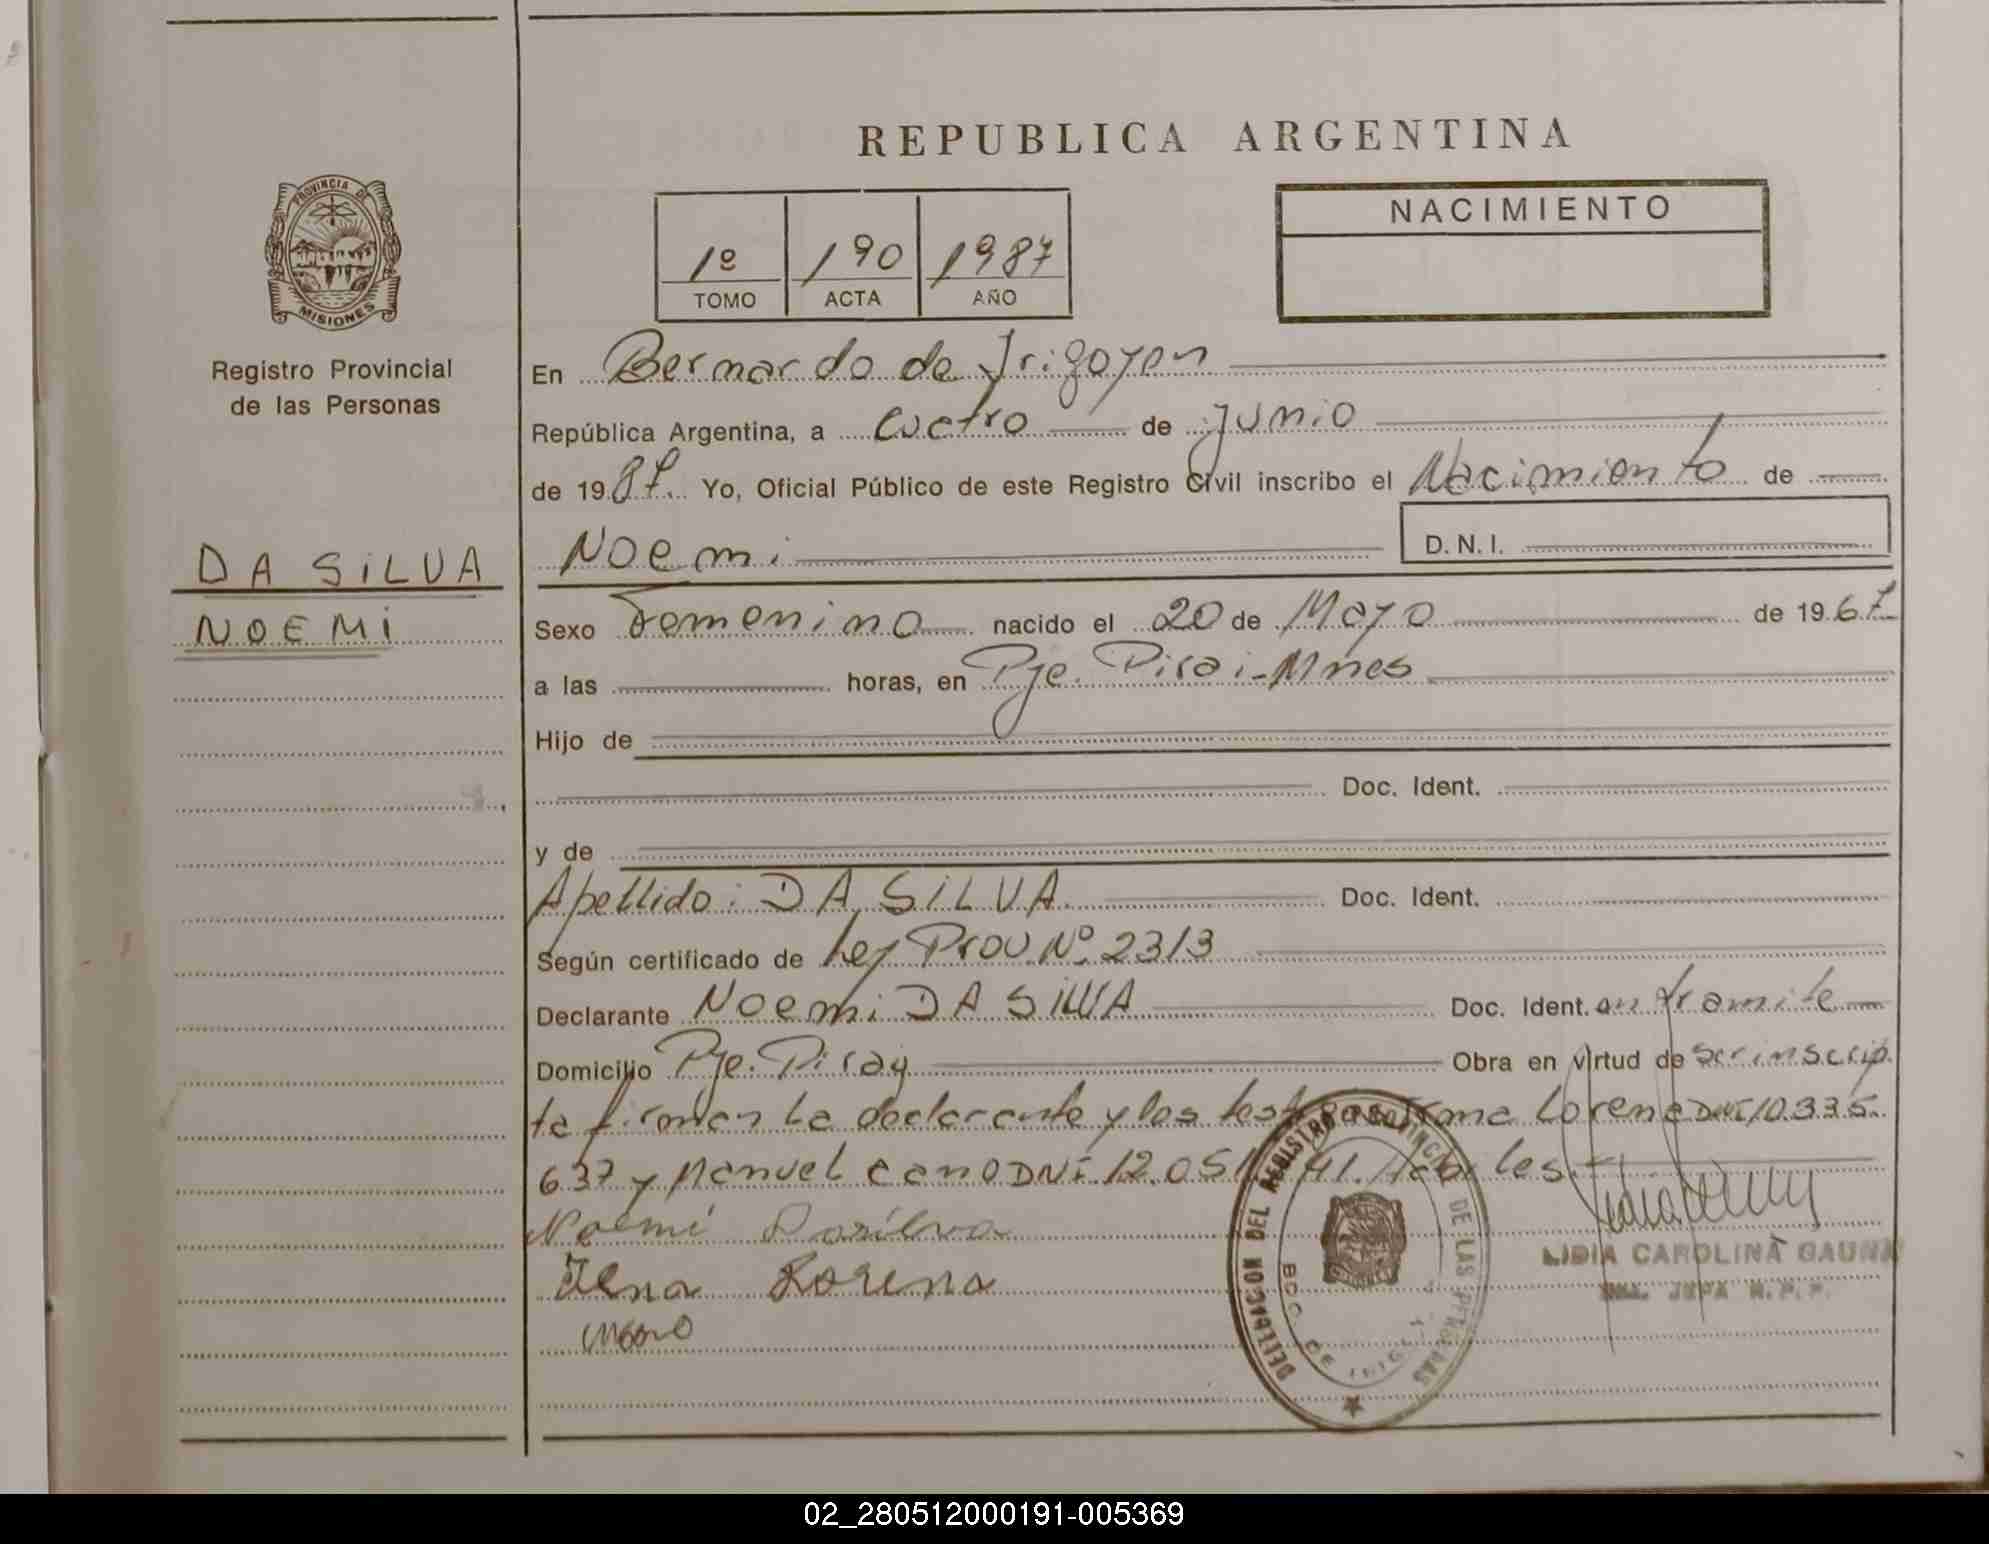 REPUBLICA ARGENTINA
PROVINCIA DE
MISIONES
Registro Provincial
de las Personas
1º 190 1987
TOMO ACTA AÑO
NACIMIENTO
En Bernardo de Irigoyen
República Argentina, a cuatro de junio
de 1987. Yo, Oficial Público de este Registro Civil inscribo el Nacimiento de
DA SILVA
NOEMI
Noemi
D.N.I.
Sexo Femenino nacido el 20 de Mayo de 1967
a las horas, en Pje. Pirai-Mnes
Hijo de
Doc. Ident.
y de
Apellido: DA SILVA. Doc. Ident.
Según certificado de Ley Prov Nº 2313
Declarante Noemi DA SILVA Doc. Ident. en tramite
Domicilio Pje. Piray Obra en virtud de ser inscrip
ta firman la declarante y los testigos Lorena DNI 10.335.
637 y Manuel cano DNI 12.051 41.
Noemí Dasilva
Lorena
DELEGACION DEL REGISTRO PROVINCIAL DE LAS PERSONAS
BDO. DE IRIGOYEN
LIDIA CAROLINA GAUNA
JEFA R.P.P.
02_280512000191-005369